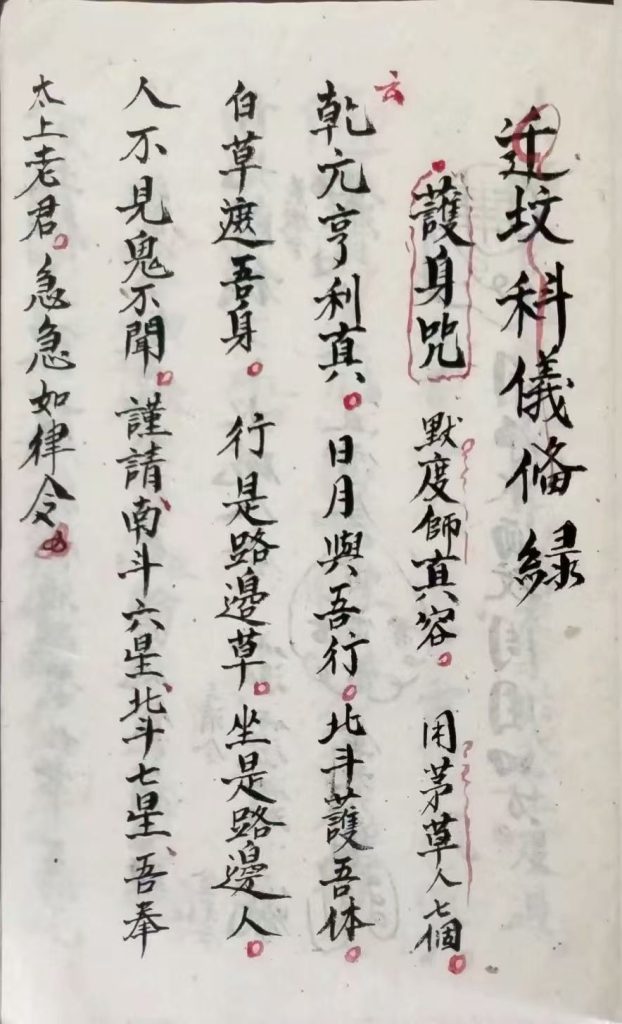 迁坟科儀俻録
護身咒 默度師真容。用茅草人七個。
云
乾元亨利真。日月與吾行。北斗護吾体。
白草遮吾身。行是路邊草。坐是路邊人。
人不見鬼不聞。謹請南斗六星、北斗七星、吾奉
太上老君。急急如律令